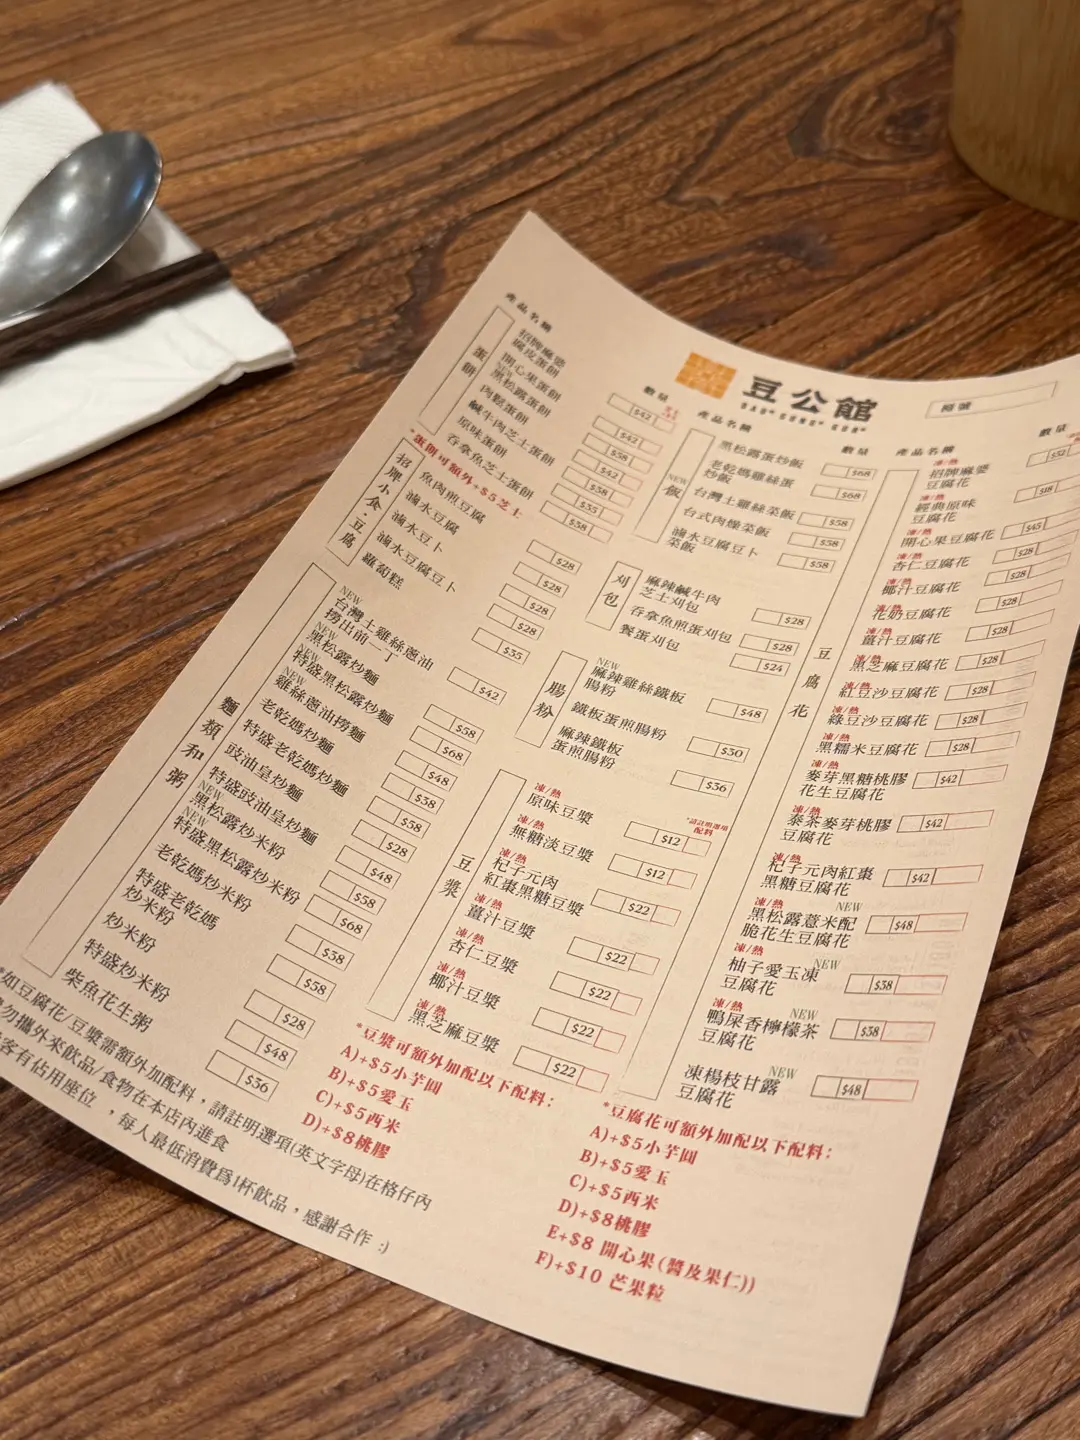 豆公館
檯號
產品名稱
數量
蛋餅
招牌麻婆
腐皮蛋餅
$42
開心果蛋餅
$42
NEW
黑松露蛋餅
$38
肉鬆蛋餅
$42
鹹牛肉芝士蛋餅
$38
原味蛋餅
$35
吞拿魚芝士蛋餅
$38
*蛋餅可額外+$5芝士
招牌小食·豆腐
魚肉煎豆腐
$28
滷水豆腐
$28
滷水豆卜
$28
滷水豆腐豆卜
$28
蘿蔔糕
$35
麵類和粥
NEW
台灣土雞絲蔥油
撈出前一丁
$42
NEW
黑松露炒麵
$58
NEW
特盛黑松露炒麵
$68
NEW
雞絲蔥油撈麵
$48
老乾媽炒麵
$38
特盛老乾媽炒麵
$58
豉油皇炒麵
$28
特盛豉油皇炒麵
$48
NEW
黑松露炒米粉
$58
NEW
特盛黑松露炒米粉
$68
老乾媽炒米粉
$38
特盛老乾媽
炒米粉
$58
炒米粉
$28
特盛炒米粉
$48
柴魚花生粥
$36
產品名稱
數量
NEW
飯
黑松露蛋炒飯
$68
老乾媽雞絲蛋
炒飯
$68
台灣土雞絲菜飯
$58
台式肉燥菜飯
$58
滷水豆腐豆卜
菜飯
$58
刈包
麻辣鹹牛肉
芝士刈包
$28
吞拿魚煎蛋刈包
$28
餐蛋刈包
$24
腸粉
NEW
麻辣雞絲鐵板
腸粉
$48
鐵板蛋煎腸粉
$30
麻辣鐵板
蛋煎腸粉
$36
豆漿
*請註明選項
配料
凍/熱
原味豆漿
$12
凍/熱
無糖淡豆漿
$12
凍/熱
杞子元肉
紅棗黑糖豆漿
$22
凍/熱
薑汁豆漿
$22
凍/熱
杏仁豆漿
$22
凍/熱
椰汁豆漿
$22
凍/熱
黑芝麻豆漿
$22
*豆漿可額外加配以下配料：
A)+$5小芋圓
B)+$5愛玉
C)+$5西米
D)+$8桃膠
產品名稱
數量
豆腐花
凍/熱
招牌麻婆
豆腐花
$32
凍/熱
經典原味
豆腐花
$18
凍/熱
開心果豆腐花
$45
凍/熱
杏仁豆腐花
$28
凍/熱
椰汁豆腐花
$28
凍/熱
花奶豆腐花
$28
凍/熱
薑汁豆腐花
$28
凍/熱
黑芝麻豆腐花
$28
凍/熱
紅豆沙豆腐花
$28
凍/熱
綠豆沙豆腐花
$28
凍/熱
黑糯米豆腐花
$28
凍/熱
麥芽黑糖桃膠
花生豆腐花
$42
凍/熱
泰茶麥芽桃膠
豆腐花
$42
凍/熱
杞子元肉紅棗
黑糖豆腐花
$42
凍/熱
NEW
黑松露薏米配
脆花生豆腐花
$48
凍/熱
NEW
柚子愛玉凍
豆腐花
$38
凍/熱
NEW
鴨屎香檸檬茶
豆腐花
$38
NEW
凍楊枝甘露
豆腐花
$48
*豆腐花可額外加配以下配料：
A)+$5小芋圓
B)+$5愛玉
C)+$5西米
D)+$8桃膠
E+$8 開心果(醬及果仁))
F)+$10 芒果粒
*如豆腐花/豆漿需額外加配料，請註明選項(英文字母)在格仔內
勿攜外來飲品/食物在本店內進食
客有佔用座位，每人最低消費爲1杯飲品，感謝合作 :)